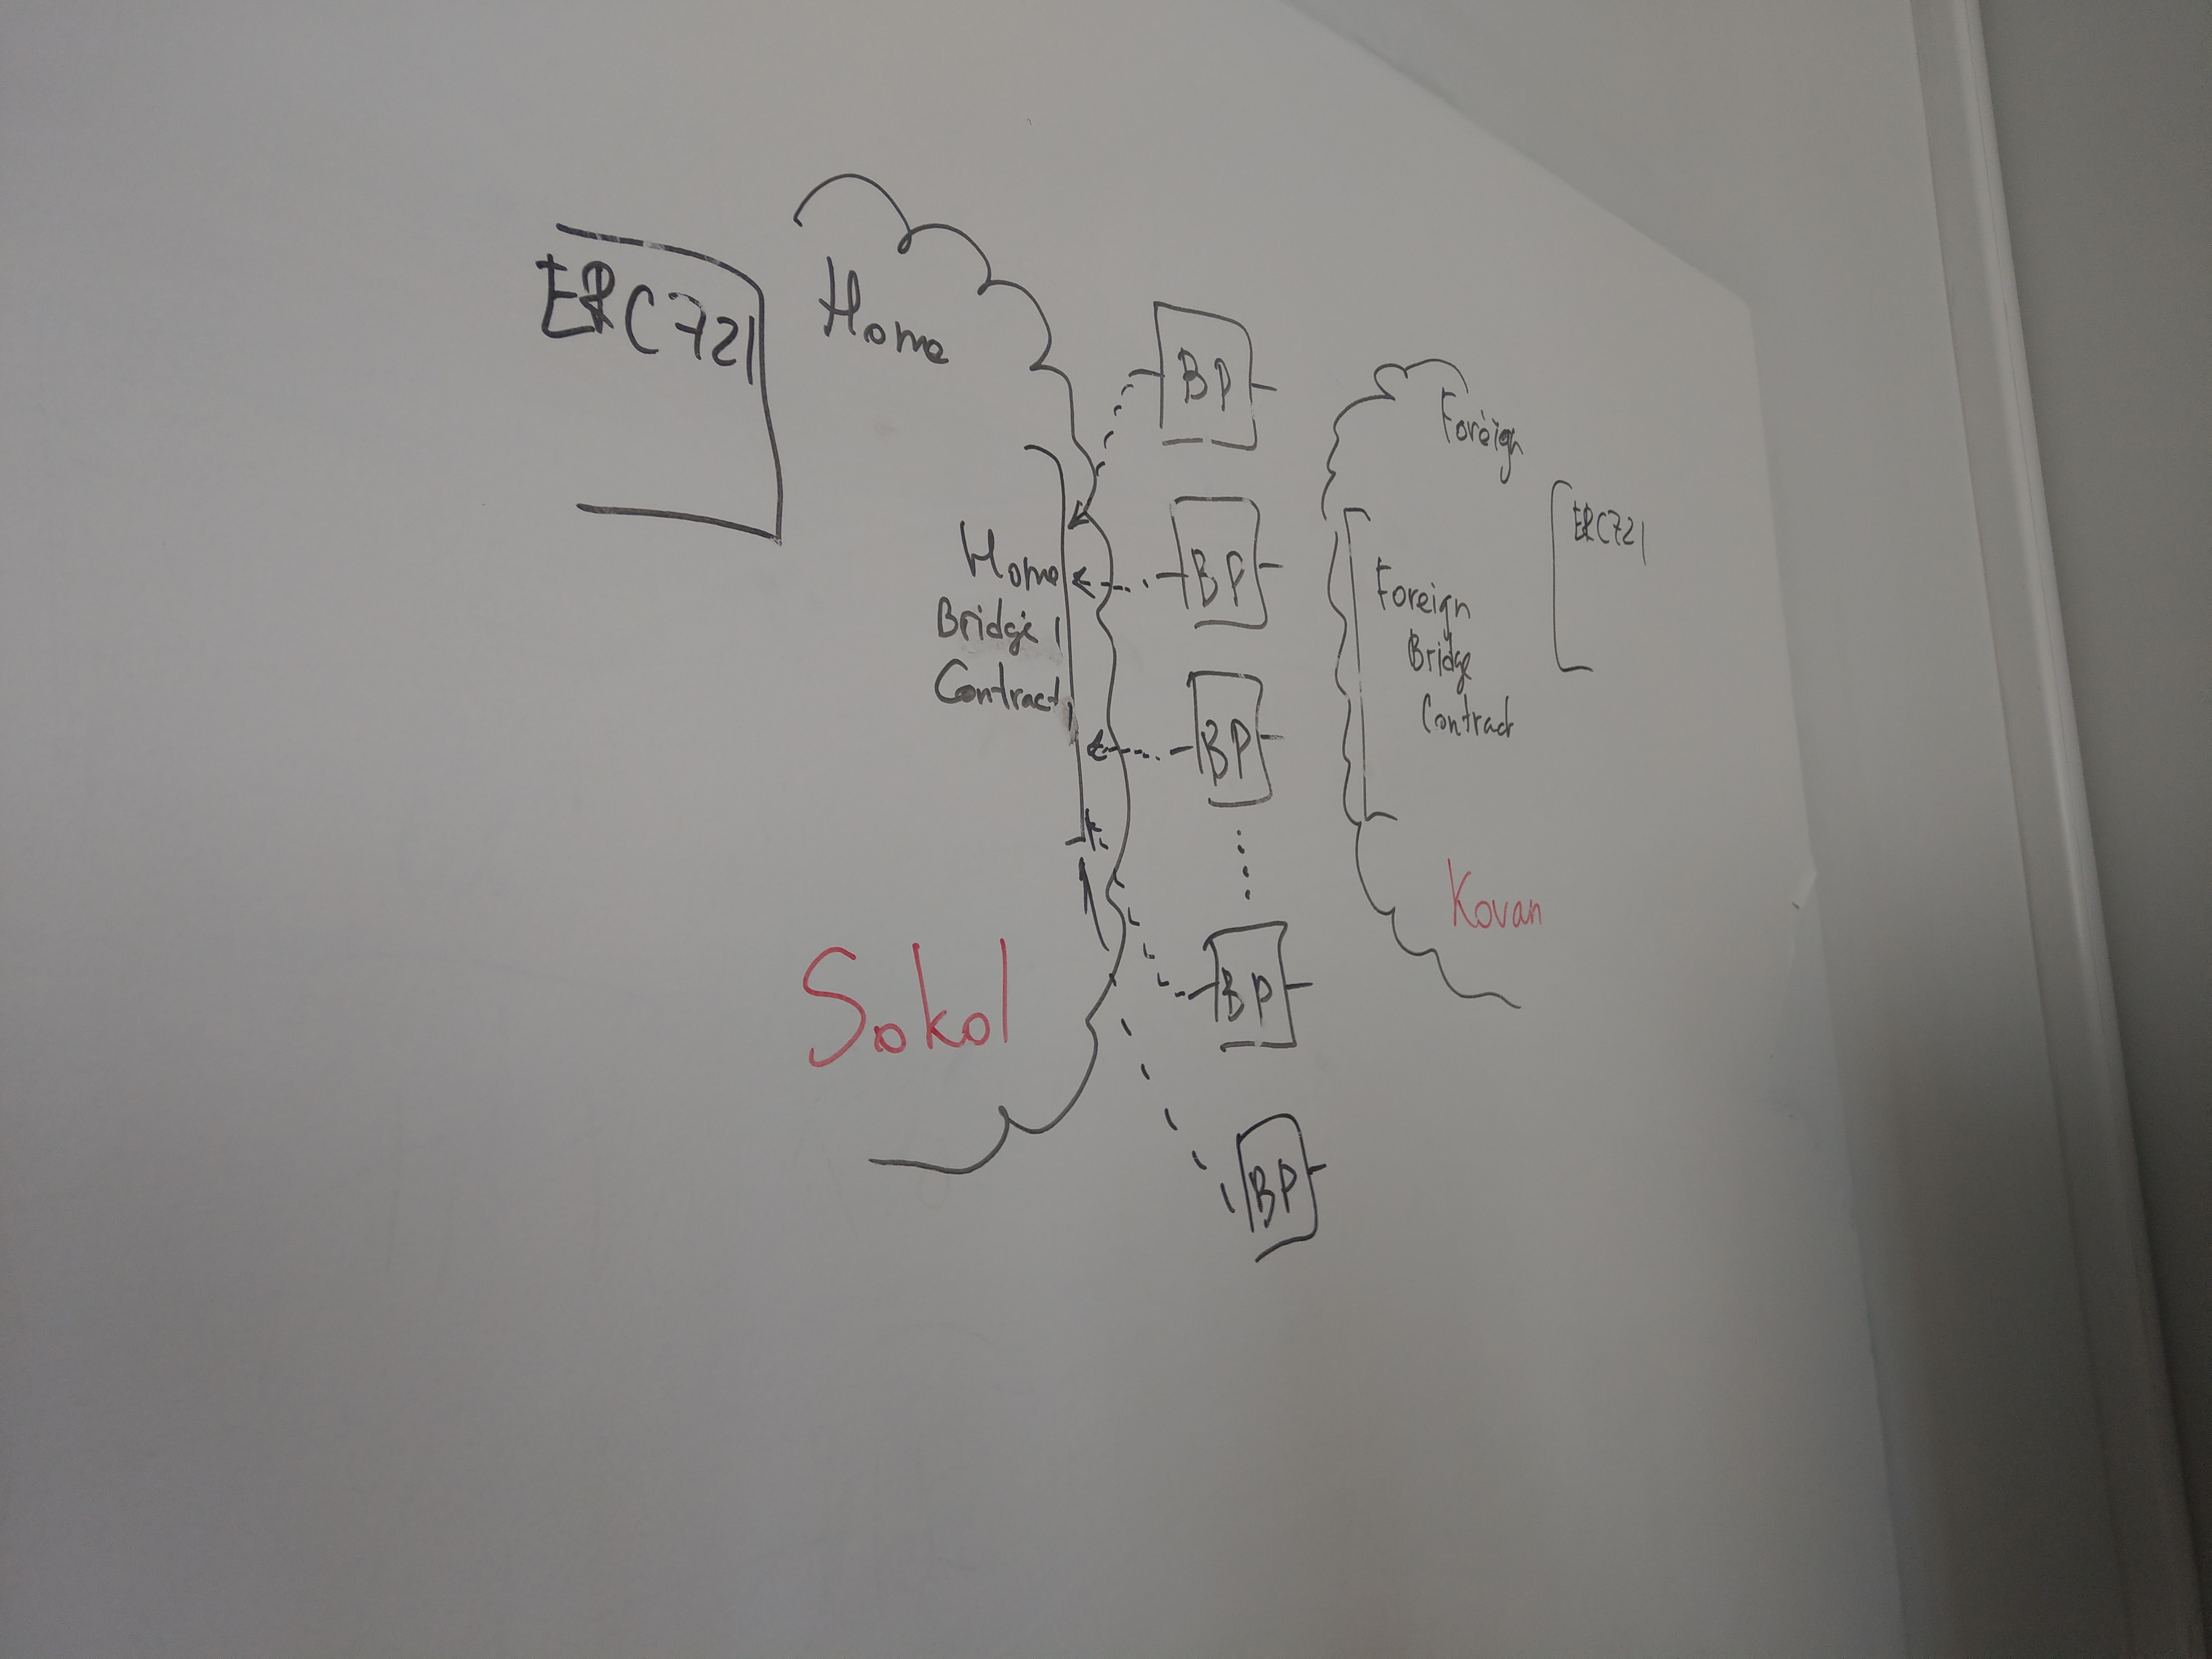 ERC721
Home
Home
Bridge
Contract
Sokol
BP
BP
BP
BP
BP
Foreign
ERC721
Foreign
Bridge
Contract
Kovan